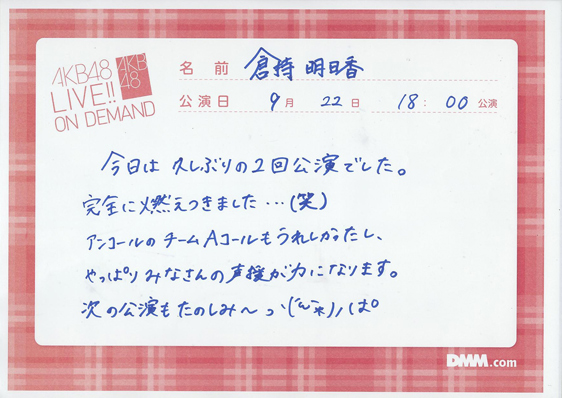 AKB48
LIVE!!
ON DEMAND
AKB
48
名前 倉持明日香
公演日 9月 22日 18:00公演
今日は久しぶりの2回公演でした。
完全に燃えつきました…(笑)
アンコールのチームAコールもうれしかったし、
やっぱりみなさんの声援が力になります。
次の公演もたのしみ〜
DMM.com